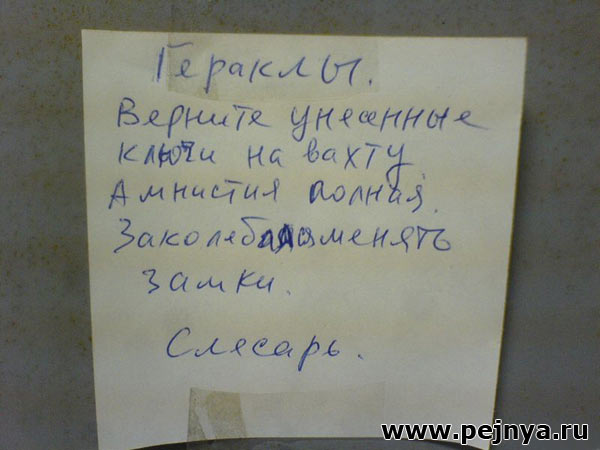 Гераклы.
Верните унесенные
ключи на вахту
Амнистия полная.
Заколебался менять
замки.
Слесарь.
www.pejnya.ru